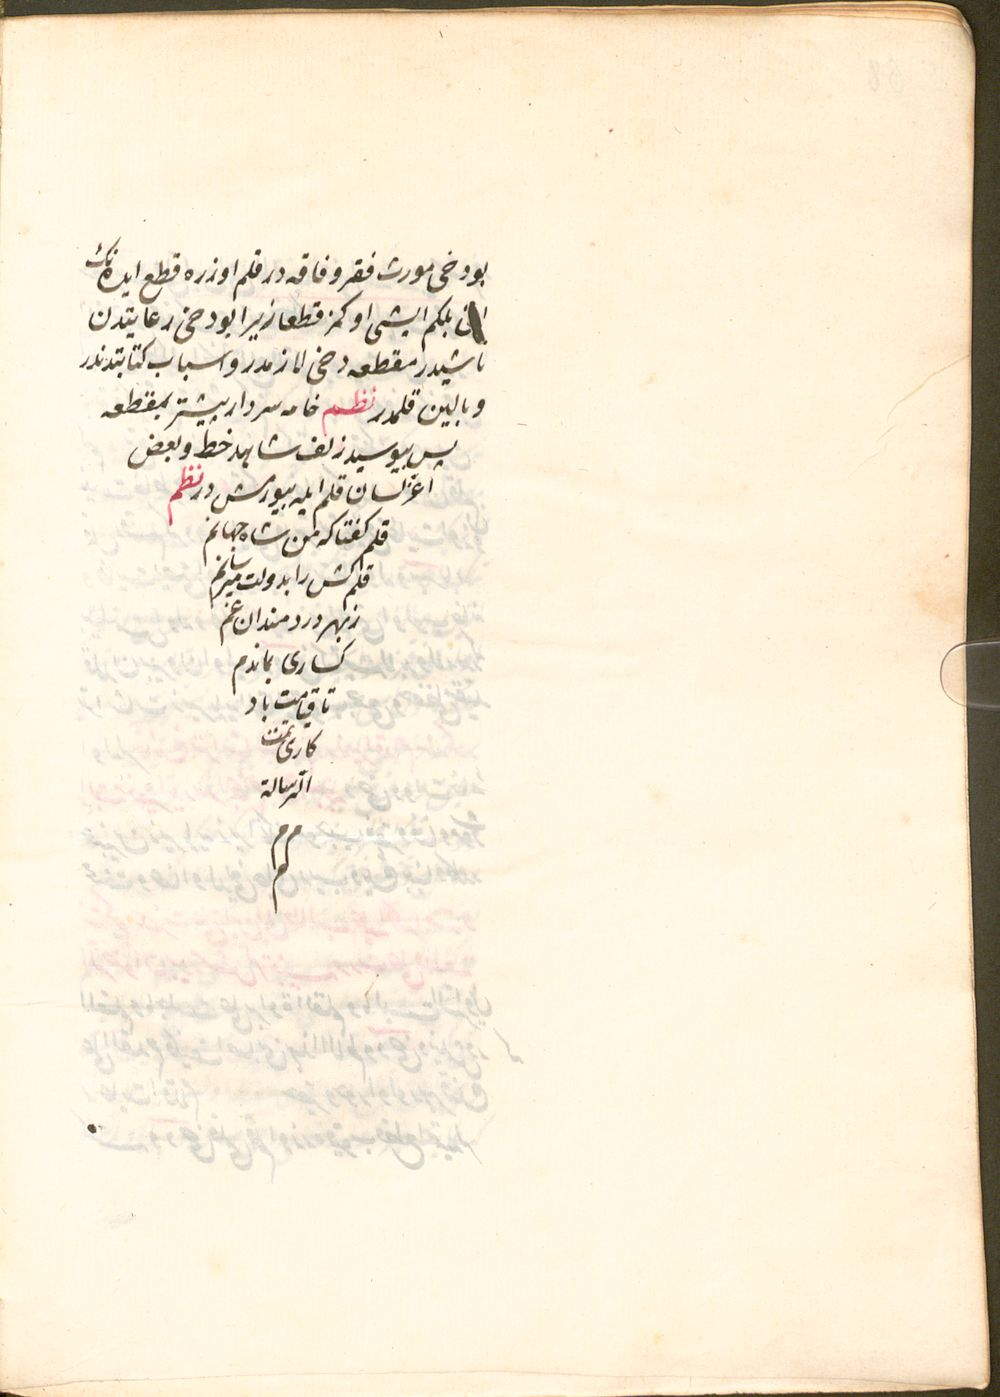 بو دخی مورث فقر و فاقه در قلم اوزره قطع ایده نك
بلكم ایشی اوكمز قطعا زیرا بو دخی رعایتدن
ناشیدر مقطعه دخی لازمدر و اسباب كتابتدندر
و بالین قلمدر نظم خامه سر دار پیشتر بمقطعه
پس ببوسید زلف شاهد خط و بعض
اعز لسان قلم ایله بیورمش در نظم
قلم گفتا كه من شاه جهانم
قلم كش را بدولت میرسانم
ز بهر دردمندان غم
گساری بماندم
تا قیامت باد
كاری تمت
الرساله
م م
م